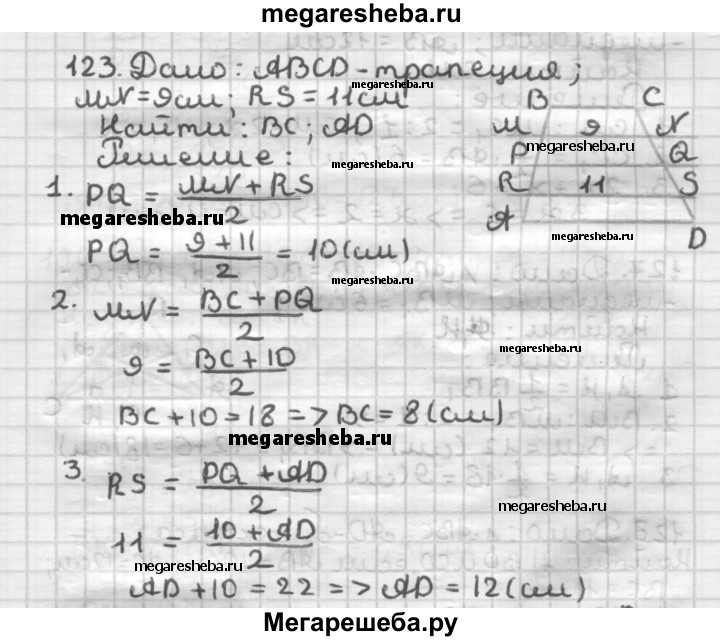 megaresheba.ru
123. Дано: ABCD - трапеция;
megaresheba.ru
megaresheba.ru
MN = 9 см; RS = 11 см
megaresheba.ru
Найти: BC; AD
Решение:
megaresheba.ru
B C
M 9 N
megaresheba.ru
P Q
R 11 S
A D
megaresheba.ru
1. PQ = MN + RS / 2
megaresheba.ru
megaresheba.ru
PQ = 9 + 11 / 2 = 10 (см)
2. MN = BC + PQ / 2
megaresheba.ru
9 = BC + 10 / 2
megaresheba.ru
BC + 10 = 18 => BC = 8 (см)
megaresheba.ru
3. RS = PQ + AD / 2
megaresheba.ru
11 = 10 + AD / 2
megaresheba.ru
AD + 10 = 22 => AD = 12 (см)
Мегарешеба.ру